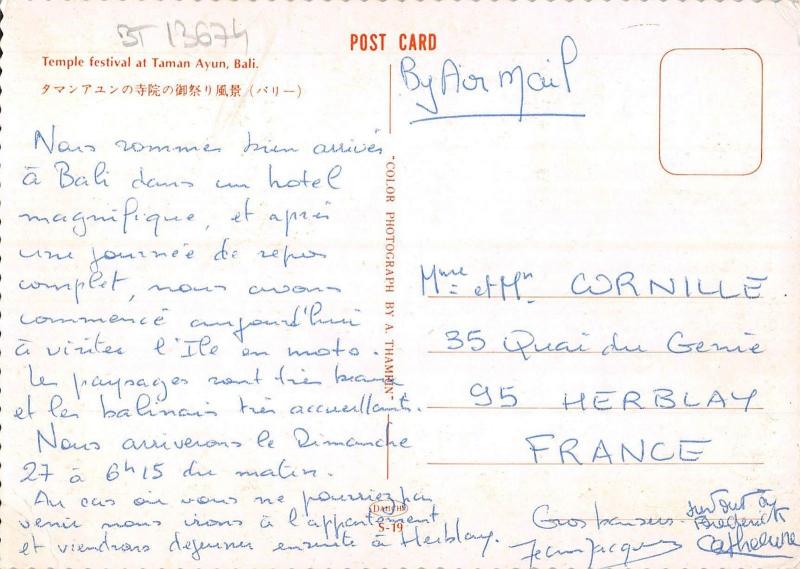 BT 13674
POST CARD
Temple festival at Taman Ayun, Bali.
タマンアユンの寺院の御祭り風景（バリー）
By Air Mail
Nous sommes bien arrivés
à Bali dans un hotel
magnifique, et après
une journée de repos
complet, nous avons
commencé aujourd'hui
à visiter l'Ile en moto.
Les paysages sont très beaux
et les balinais très accueillants.
Nous arriverons le Dimanche
27 à 6h15 du matin.
Au cas où vous ne pourriez pas
venir nous irons à l'appartement
et viendrons dejeuner ensuite à Herblay.
COLOR PHOTOGRAPH BY A. THAMRIN
DAIICHI
S-19
Mme et Mr CORNILLE
35 Quai du Genie
95 HERBLAY
FRANCE
Gros baisers surtout à
Frederick
Jean Jacques Catherine